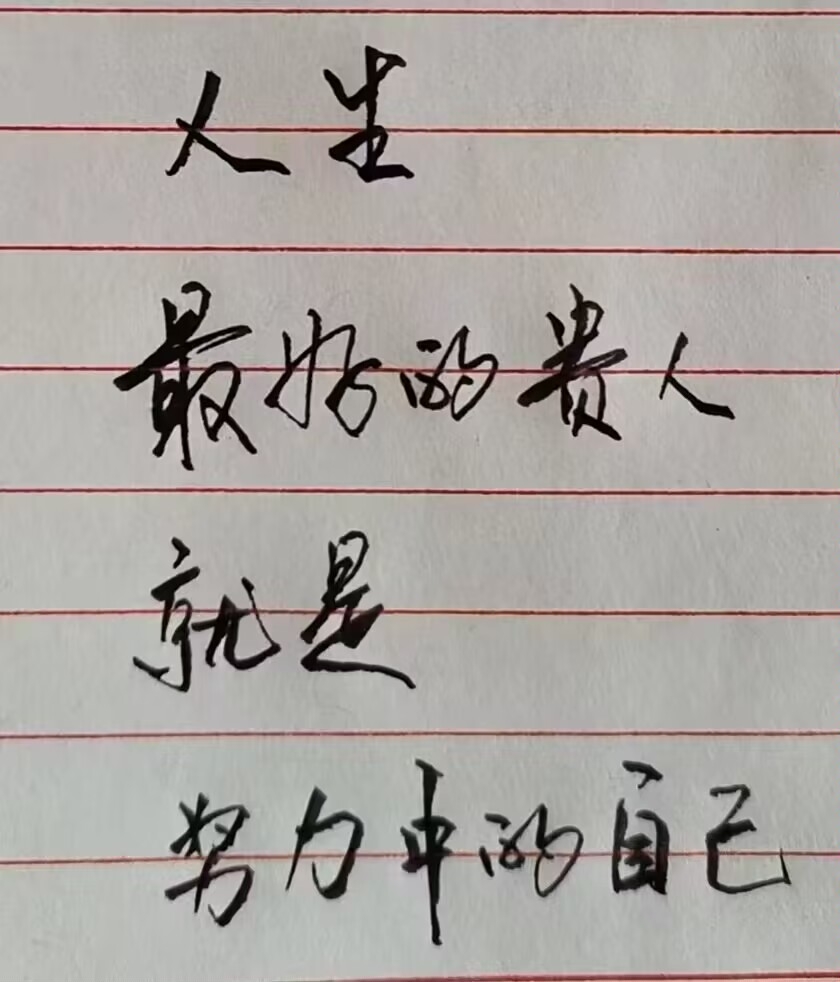 人生
最好的贵人
就是
努力中的自己